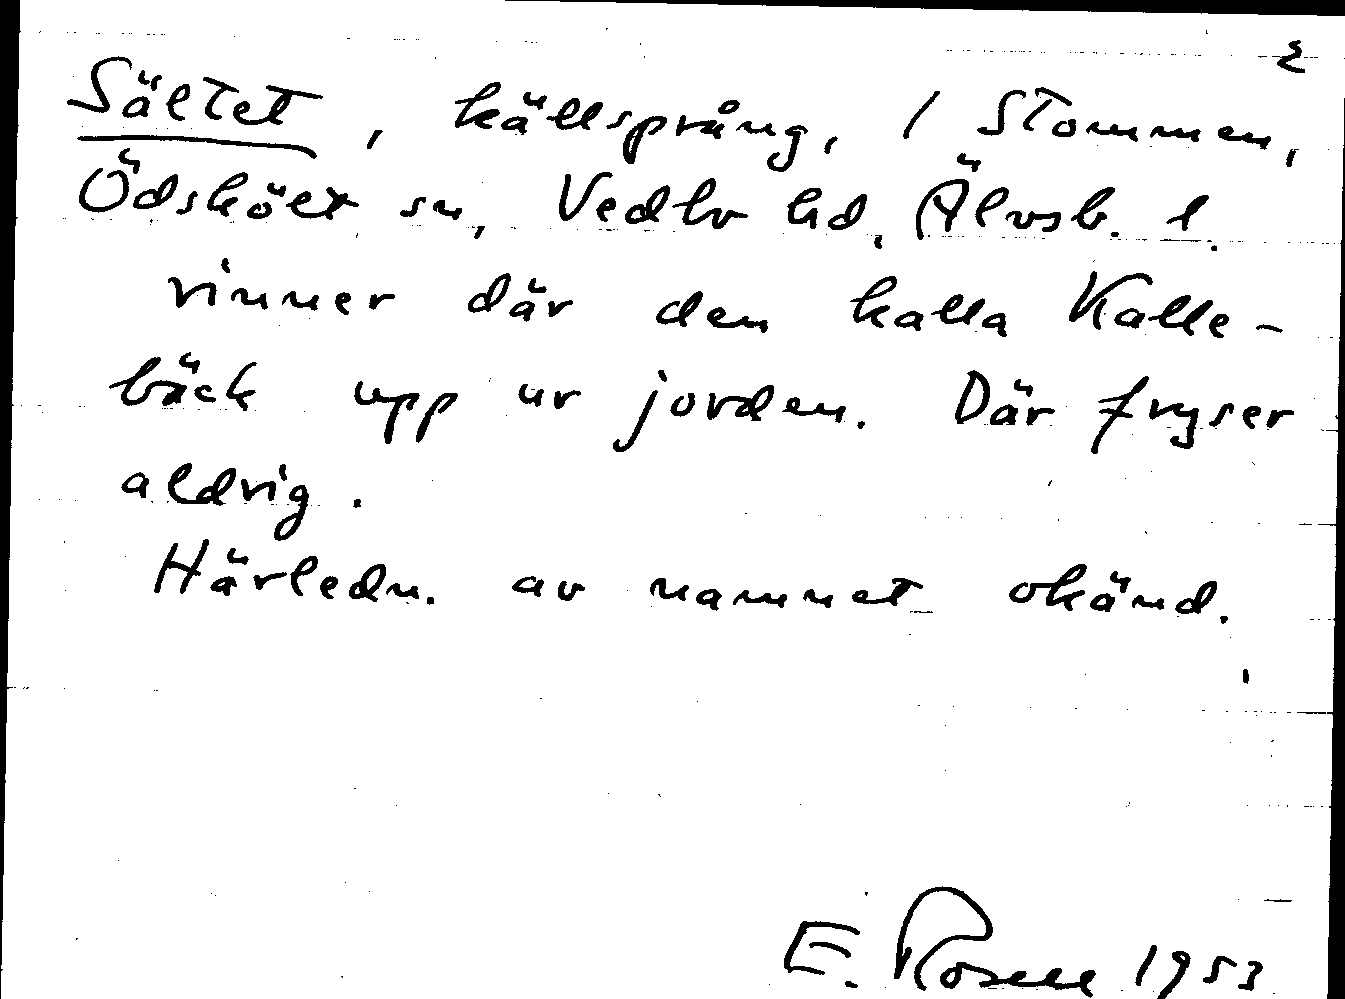 Sältet, källsprång, / Stommen,
Ödskölt sn, Vedbo hd, Älvsb. l.
rinner där den kalla Kalle-
bäck upp ur jorden. Där fryser
aldrig.
Härledn. av namnet okänd.
E. Rosell 1953